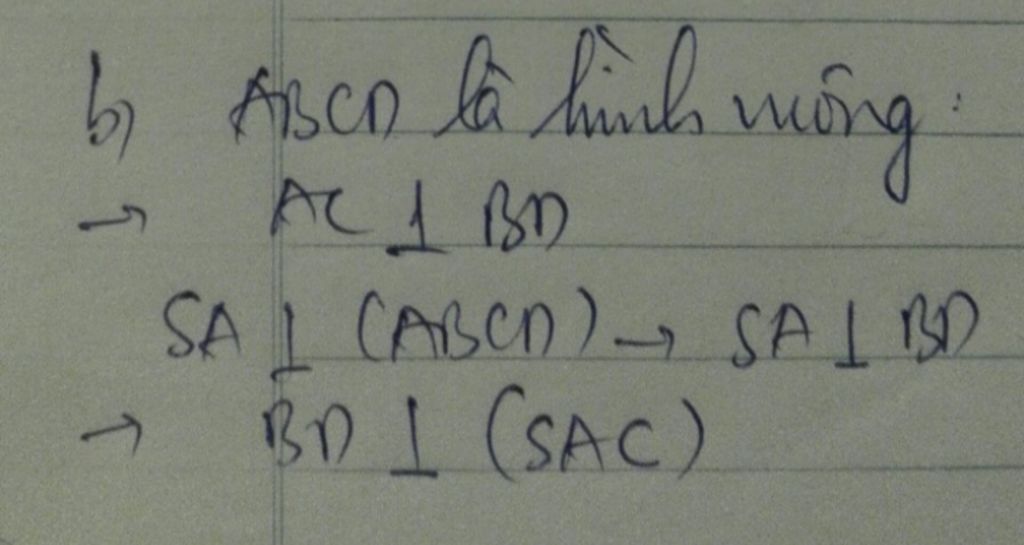 b) ABCD là hình vuông:
→ AC ⊥ BD
SA ⊥ (ABCD) → SA ⊥ BD
→ BD ⊥ (SAC)